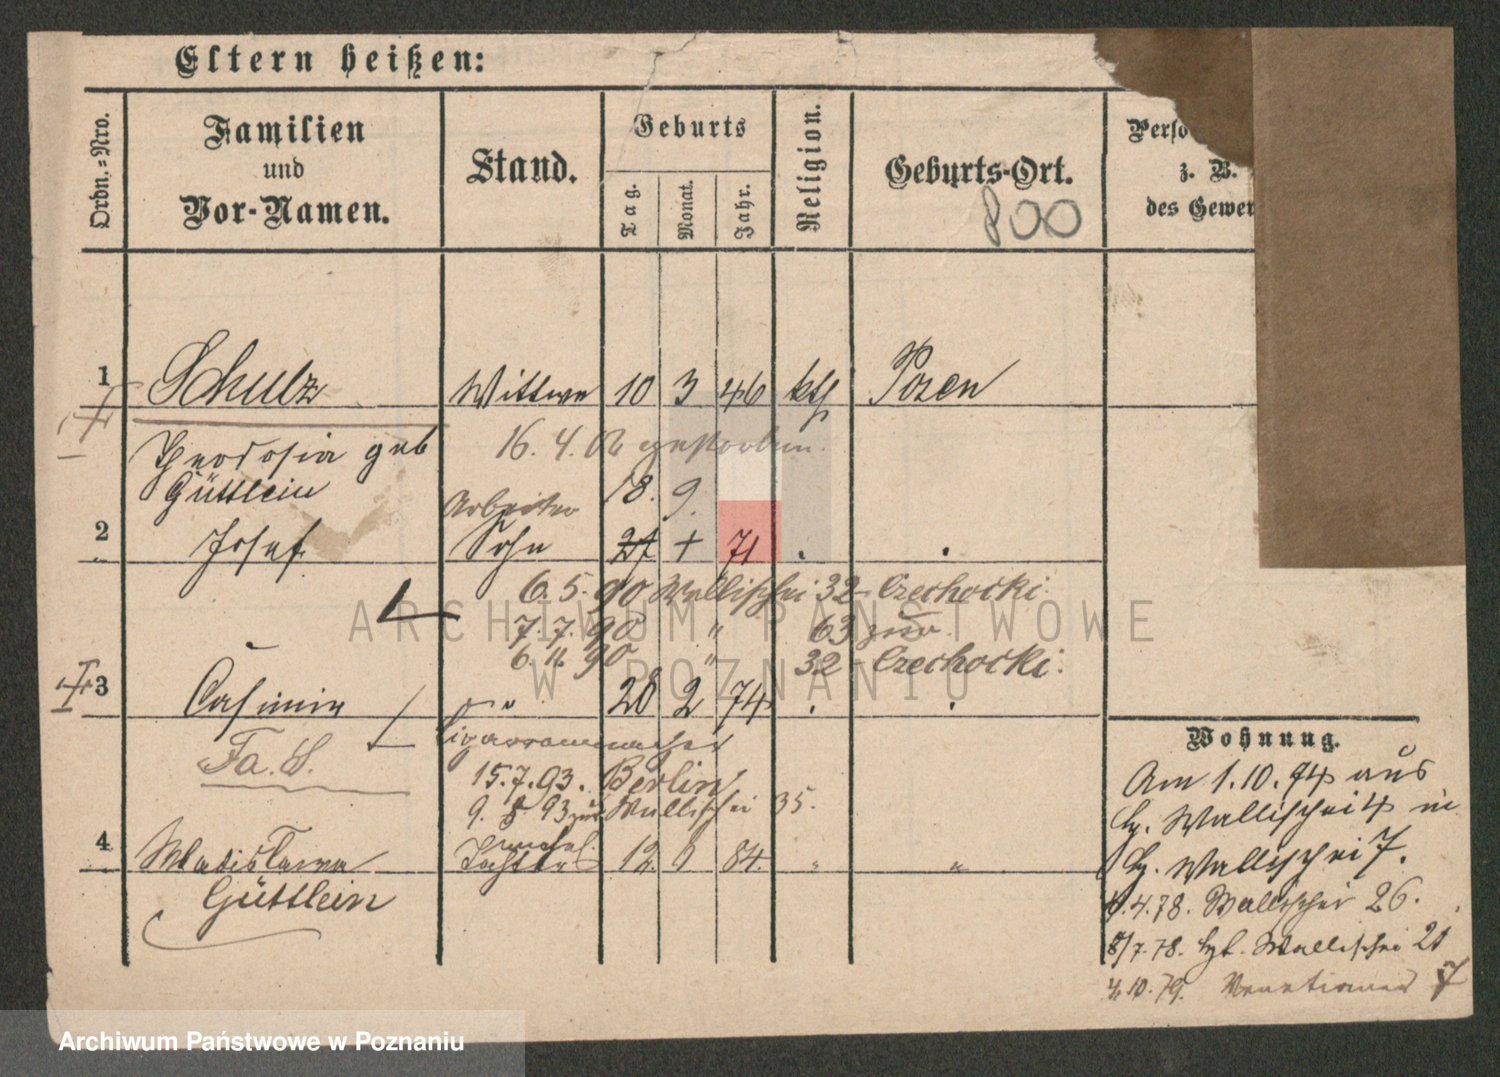 Eltern heißen:
Ordn.=Nro.
Familien
und
Vor-Namen.
Stand.
Geburts
Tag.
Monat.
Jahr.
Religion.
Geburts-Ort.
800
Perso
z. B.
des Gewer
1 Schulz Wittwe 10 3 46 kth Posen
Theodosia geb 16. 4. 06 gestorben.
Güttlein
Arbeiter 18. 9.
2 Josef Sohn 27 + 71 . .
6. 5. 90 Wallischei 32 Czechocki
7. 7. 90 " 63 zur.
6. 11. 90 " 32 Czechocki.
3 Casimir " 28 2 74 . .
Fa. S. Cigarrenmacher
15. 7. 93. Berlin
9. 8 93 zur Wallischei 35.
unehel.
4 Wladislawa Tochter 12. 9 84. " "
Güttlein
Wohnung.
Am 1. 10. 74 aus
Wallischei 4 in
Wallischei 7.
4. 78. Wallischei 26.
8/7. 78. Wallischei 21
4. 10. 79. Venetianer 7
ARCHIWUM PAŃSTWOWE
W POZNANIU
Archiwum Państwowe w Poznaniu